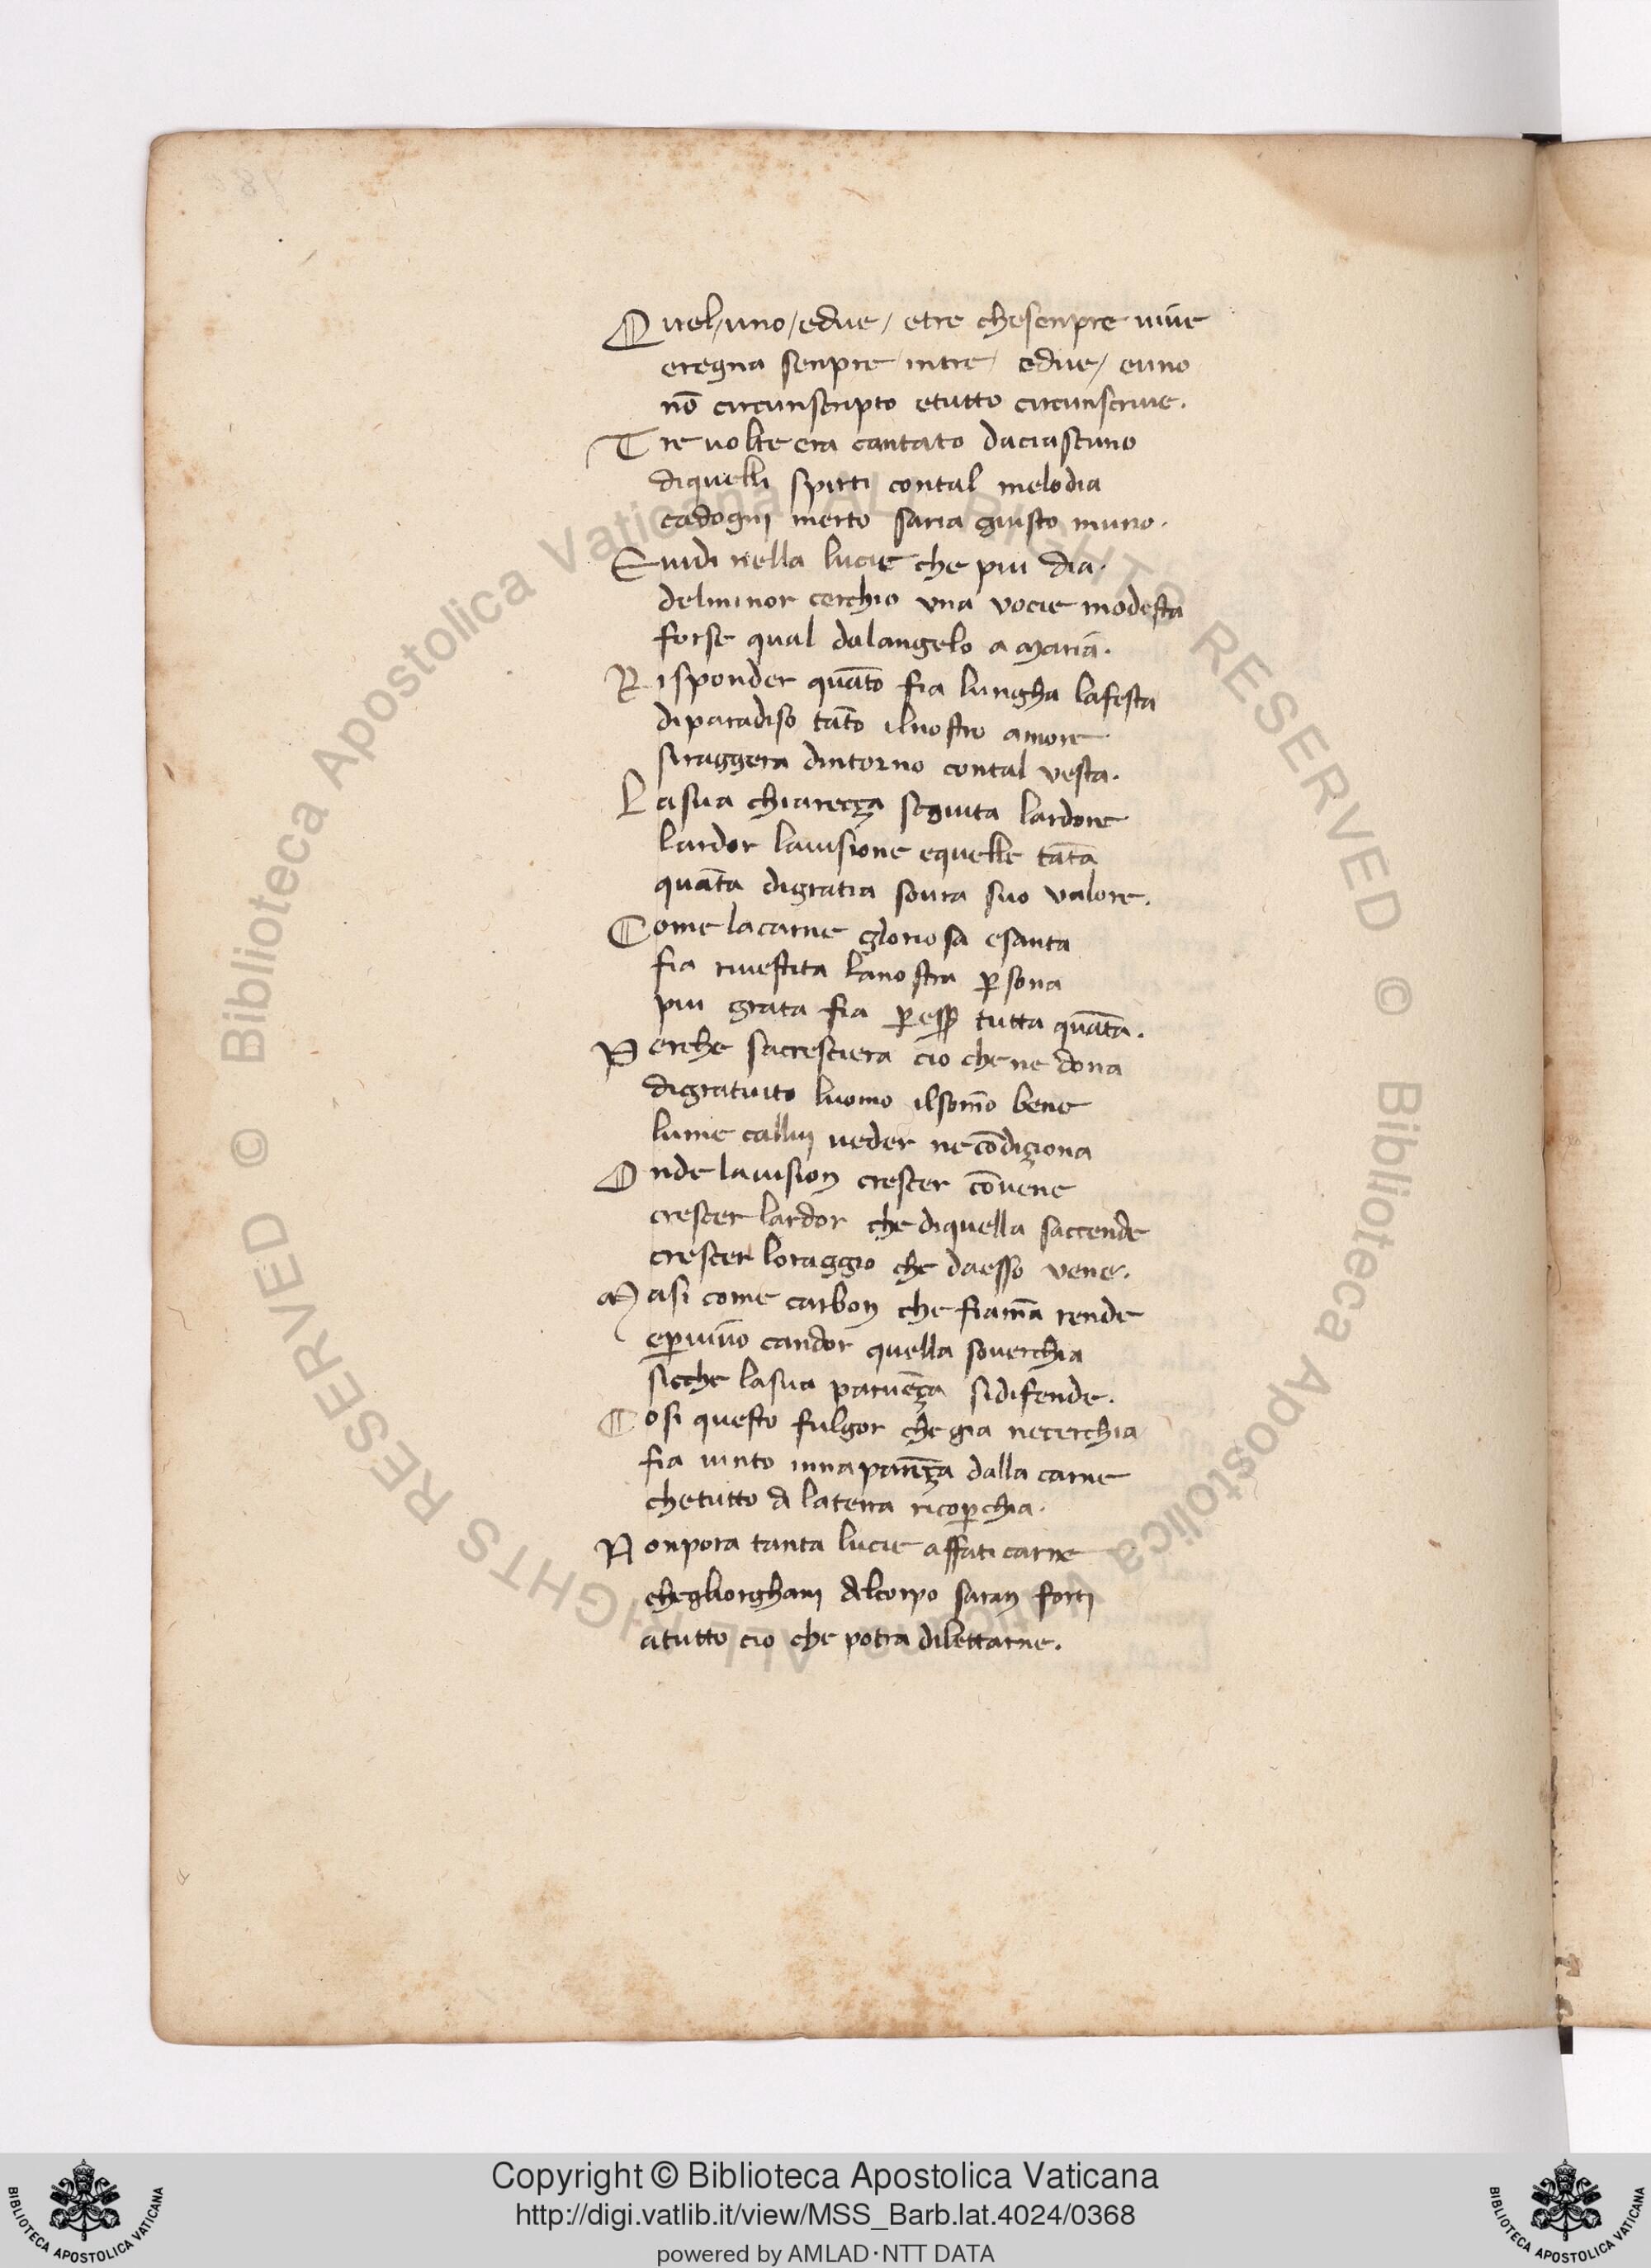 Quel/uno/edue/ etre chesenpre uiue
eregna senpre intre/ edue/ euno
nō circunscripto etutto circunscriue.
Tre uolte era cantato daciascuno
diquelli spirti contal melodia
cadogni merto saria giusto muno.
Euidi nella lucie che piu dia.
delminor cerchio vna vocie modesta
forse qual dalangelo a maria.
Risponder quāto fia lungha lafesta
diparadiso tāto ilnostro amore
siraggera dintorno contal vesta.
Lasua chiarecça seguita lardore
lardor lauisione equelle tāta
quāta digratia soura suo valore.
Come lacarne gloriosa esanta
fia riuestita lanostra ꝑsona
piu grata fia ꝑ esꝑ tutta quāta.
Perche sacresciera cio che ne dona
digratuito luomo ilsomō bene
lume callui ueder ne cōdiçiona
Onde lauision crescer cōuene
crescer lardor che diquella saccende
crescer loraggio che daesso vene.
Masi come carbon che fiamā rende
eꝑ uiuo candor quella souerchia
sicche lasua paruēça sidifende.
Cosi questo fulgor che gia necerchia
fia uinto innaparēça dalla carne
chetutto di laterra ricoꝑchia.
Nonpora tanta lucie affaticarne
chegliorghani delcorpo saran forti
atutto cio che potra dilettarne.
© Biblioteca Apostolica Vaticana ALL RIGHTS RESERVED © Biblioteca Apostolica Vaticana ALL RIGHTS RESERVED
Copyright © Biblioteca Apostolica Vaticana
http://digi.vatlib.it/view/MSS_Barb.lat.4024/0368
powered by AMLAD·NTT DATA
BIBLIOTECA APOSTOLICA VATICANA
BIBLIOTECA APOSTOLICA VATICANA